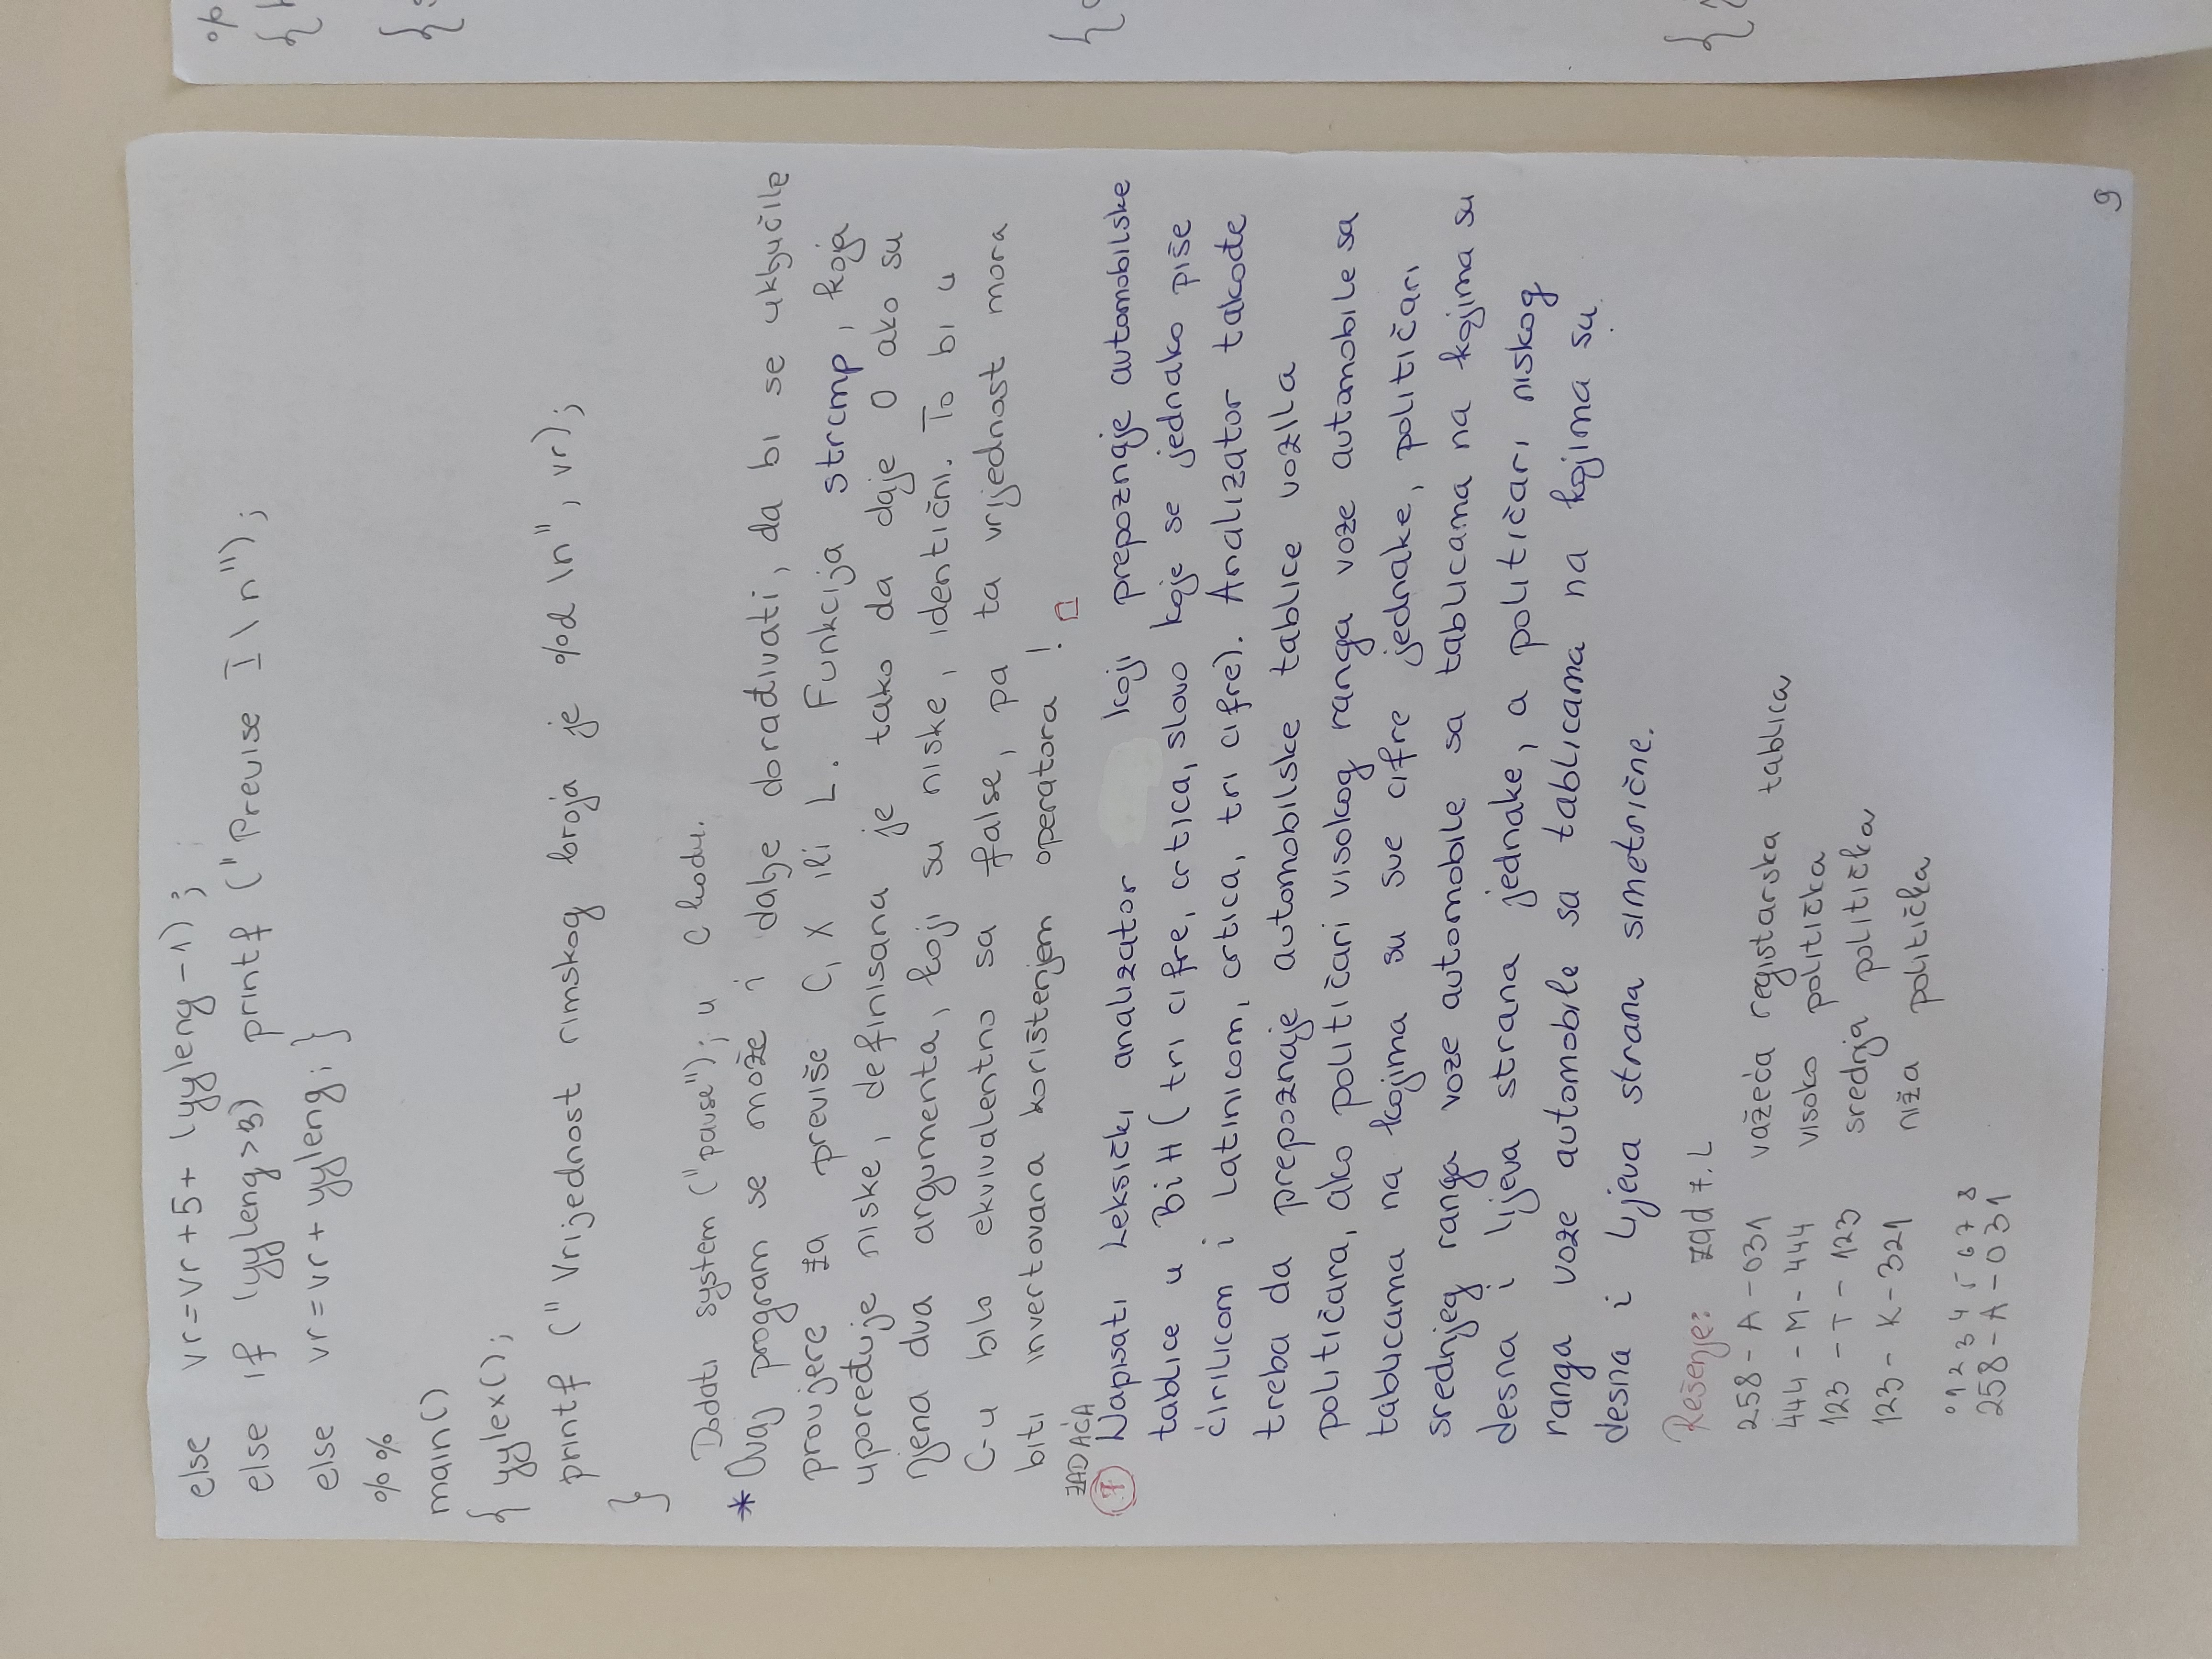 else vr=vr+5+ (yyleng-1);
else if (yyleng>3) printf ("Previse I\n");
else vr=vr+yyleng; }
%%
main()
{ yylex();
printf ("Vrijednost rimskog broja je %d \n", vr);
}
Dodati system ("pause"); u C kodu.
* Ovaj program se može i dalje dorađivati, da bi se uključile
provjere za previše C, X ili L. Funkcija strcmp, koja
upoređuje niske, definisana je tako da daje 0 ako su
njena dva argumenta, koji su niske, identični. To bi u
C-u bilo ekvivalentno sa false, pa ta vrijednost mora
biti invertovana korištenjem operatora !
ZADAĆA
7 Napisati Leksički analizator koji prepoznaje automobilske
tablice u BiH (tri cifre, crtica, slovo koje se jednako piše
ćirilicom i latinicom, crtica, tri cifre). Analizator takođe
treba da prepoznaje automobilske tablice vozila
političara, ako političari visokog ranga voze automobile sa
tablicama na kojima su sve cifre jednake, političari
srednjeg ranga voze automobile sa tablicama na kojima su
desna i lijeva strana jednake, a političari niskog
ranga voze automobile sa tablicama na kojima su
desna i lijeva strana simetrične.
Rešenje: zad 7. L
258-A-031 važeća registarska tablica
444-M-444 visoko politička
123-T-123 srednja politička
123-K-321 niža politička
0 1 2 3 4 5 6 7 8
258-A-031
9
%
{
{
{
{